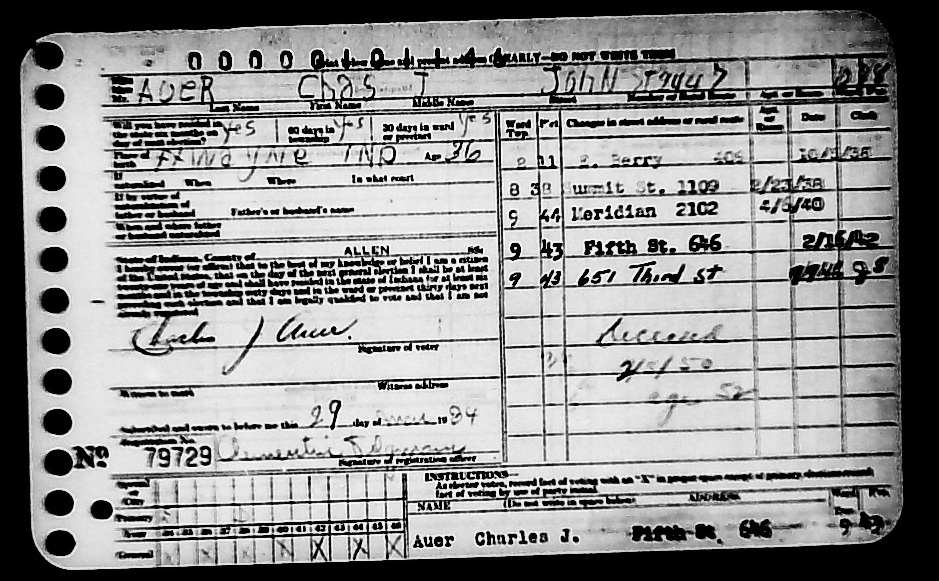 EARLY—DO NOT WRITE THEM
AUER Chas J John St 
Last Name First Name Middle Name Street Number or Rural Route
Will you have resided in the state six months on day of next election? yes 60 days in township yes 30 days in ward or precinct yes
Ward Twp. Prct Changes in street address or rural route Apt. or Room Date Clerk
Place of birth Ft Wayne IND Age 36
8 11 E. Berry
If naturalized When Where In what court
8 Summit St. 1109 2/23/38
If by virtue of naturalization of father or husband Father's or husband's name
9 44 Meridian 2102 4/5/40
When and where father or husband naturalized
State of Indiana, County of ALLEN SS:
9 43 Fifth St. 646 2/16/42
I hereby swear (or affirm) that to the best of my knowledge or belief I am a citizen
of the United States, that on the day of the next general election I shall be at least
twenty-one years of age and shall have resided in the state of Indiana for at least six
months and in the township sixty days and in the ward or precinct thirty days next
preceding such election and that I am legally qualified to vote and that I am not
already registered
9 43 651 Third St
Charles J Auer.
Signature of voter
Deceased
Witness to mark Witness address
age 52
Subscribed and sworn to before me this 29 day of 1934
Registration No.
No 79729 Clementine
Signature of registration officer
INSTRUCTIONS—
As elector votes, record fact of voting with an "X" in proper space except at primary election record
fact of voting by use of party initial.
Special or City
NAME (Do not write in space below) ADDRESS Ward Twp. Prct.
Primary
Year 34 35 36 37 38 39 40 41 42 43 44 45 46
General X X X X
Auer Charles J. Fifth St. 646 9 43